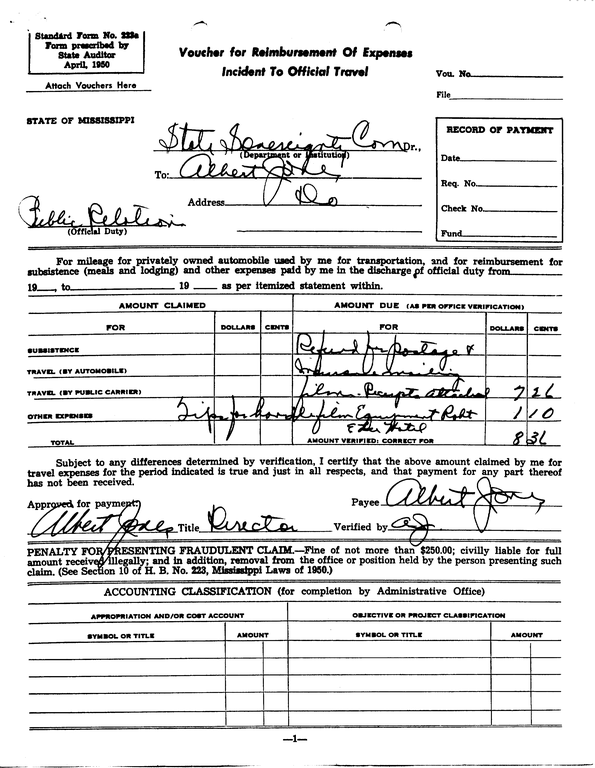 Standard Form No. 223a
Form prescribed by
State Auditor
April, 1950
Attach Vouchers Here
Voucher for Reimbursement Of Expenses
Incident To Official Travel
Vou. No.
File
STATE OF MISSISSIPPI
State Sovereignty Com Dr.,
(Department or Institution)
To: Albert Jones
Address
Public Relation
(Official Duty)
RECORD OF PAYMENT
Date
Req. No.
Check No.
Fund
For mileage for privately owned automobile used by me for transportation, and for reimbursement for
subsistence (meals and lodging) and other expenses paid by me in the discharge of official duty from
19 , to 19 as per itemized statement within.
AMOUNT CLAIMED AMOUNT DUE (AS PER OFFICE VERIFICATION)
FOR DOLLARS CENTS FOR DOLLARS CENTS
SUBSISTENCE Refund for postage &
TRAVEL (BY AUTOMOBILE) Insurance mailing
TRAVEL (BY PUBLIC CARRIER) film - Receipts attached 7 26
OTHER EXPENSES Tips for handle film Equipment Robt 1 10
E Lee Hotel
TOTAL AMOUNT VERIFIED: CORRECT FOR 8 36
Subject to any differences determined by verification, I certify that the above amount claimed by me for
travel expenses for the period indicated is true and just in all respects, and that payment for any part thereof
has not been received.
Approved for payment: Payee Albert Jones
Albert Jones Title Director Verified by aj
PENALTY FOR PRESENTING FRAUDULENT CLAIM.—Fine of not more than $250.00; civilly liable for full
amount received illegally; and in addition, removal from the office or position held by the person presenting such
claim. (See Section 10 of H. B. No. 223, Mississippi Laws of 1950.)
ACCOUNTING CLASSIFICATION (for completion by Administrative Office)
APPROPRIATION AND/OR COST ACCOUNT OBJECTIVE OR PROJECT CLASSIFICATION
SYMBOL OR TITLE AMOUNT SYMBOL OR TITLE AMOUNT
—1—